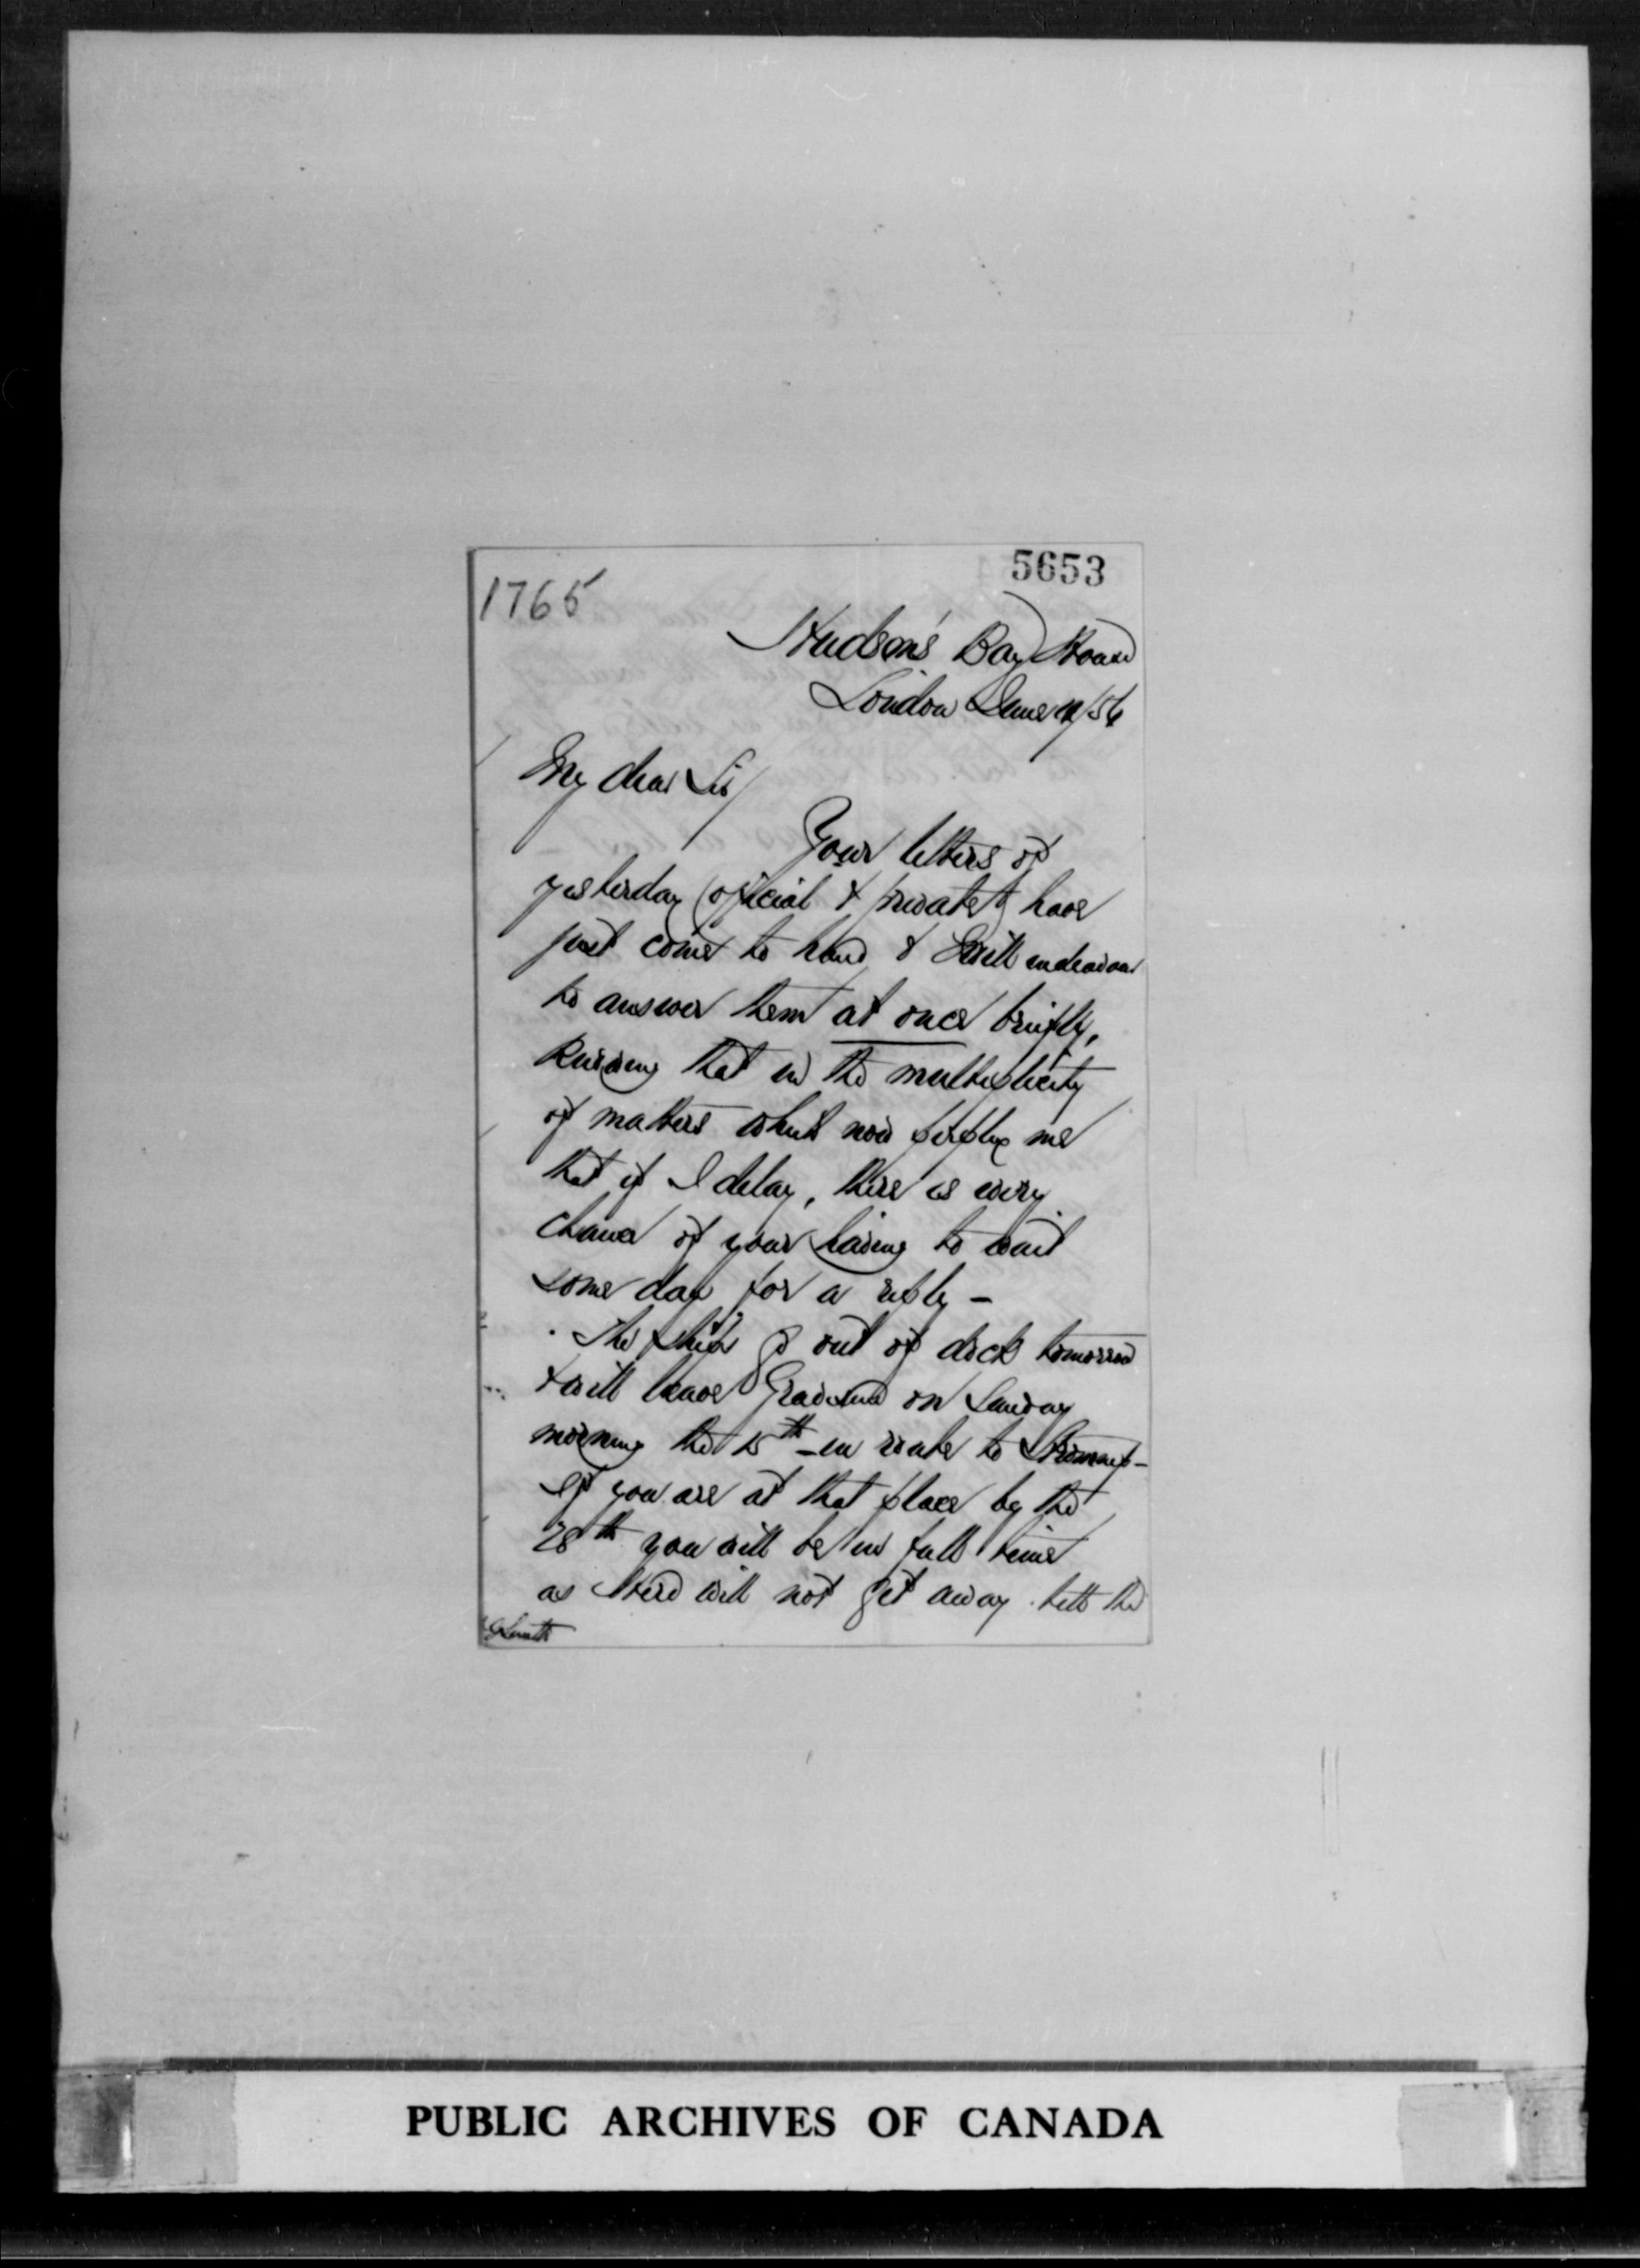 5653
1765
Hudson's Bay House
London June 12/56
My dear Sir/
Your letters of
yesterday (official & private) have
just come to hand & I will endeavour
to answer them at once briefly,
knowing that in the multiplicity
of matters which now perplex me
that if I delay, there is every
chance of your having to wait
some day for a reply -
The Ships go out of dock tomorrow
& will leave Gravesend on Sunday
morning the 15th - en route to Stromness -
If you are at that place by the
28th you will be in full time
as Herd will not get away till the
Smith
PUBLIC ARCHIVES OF CANADA